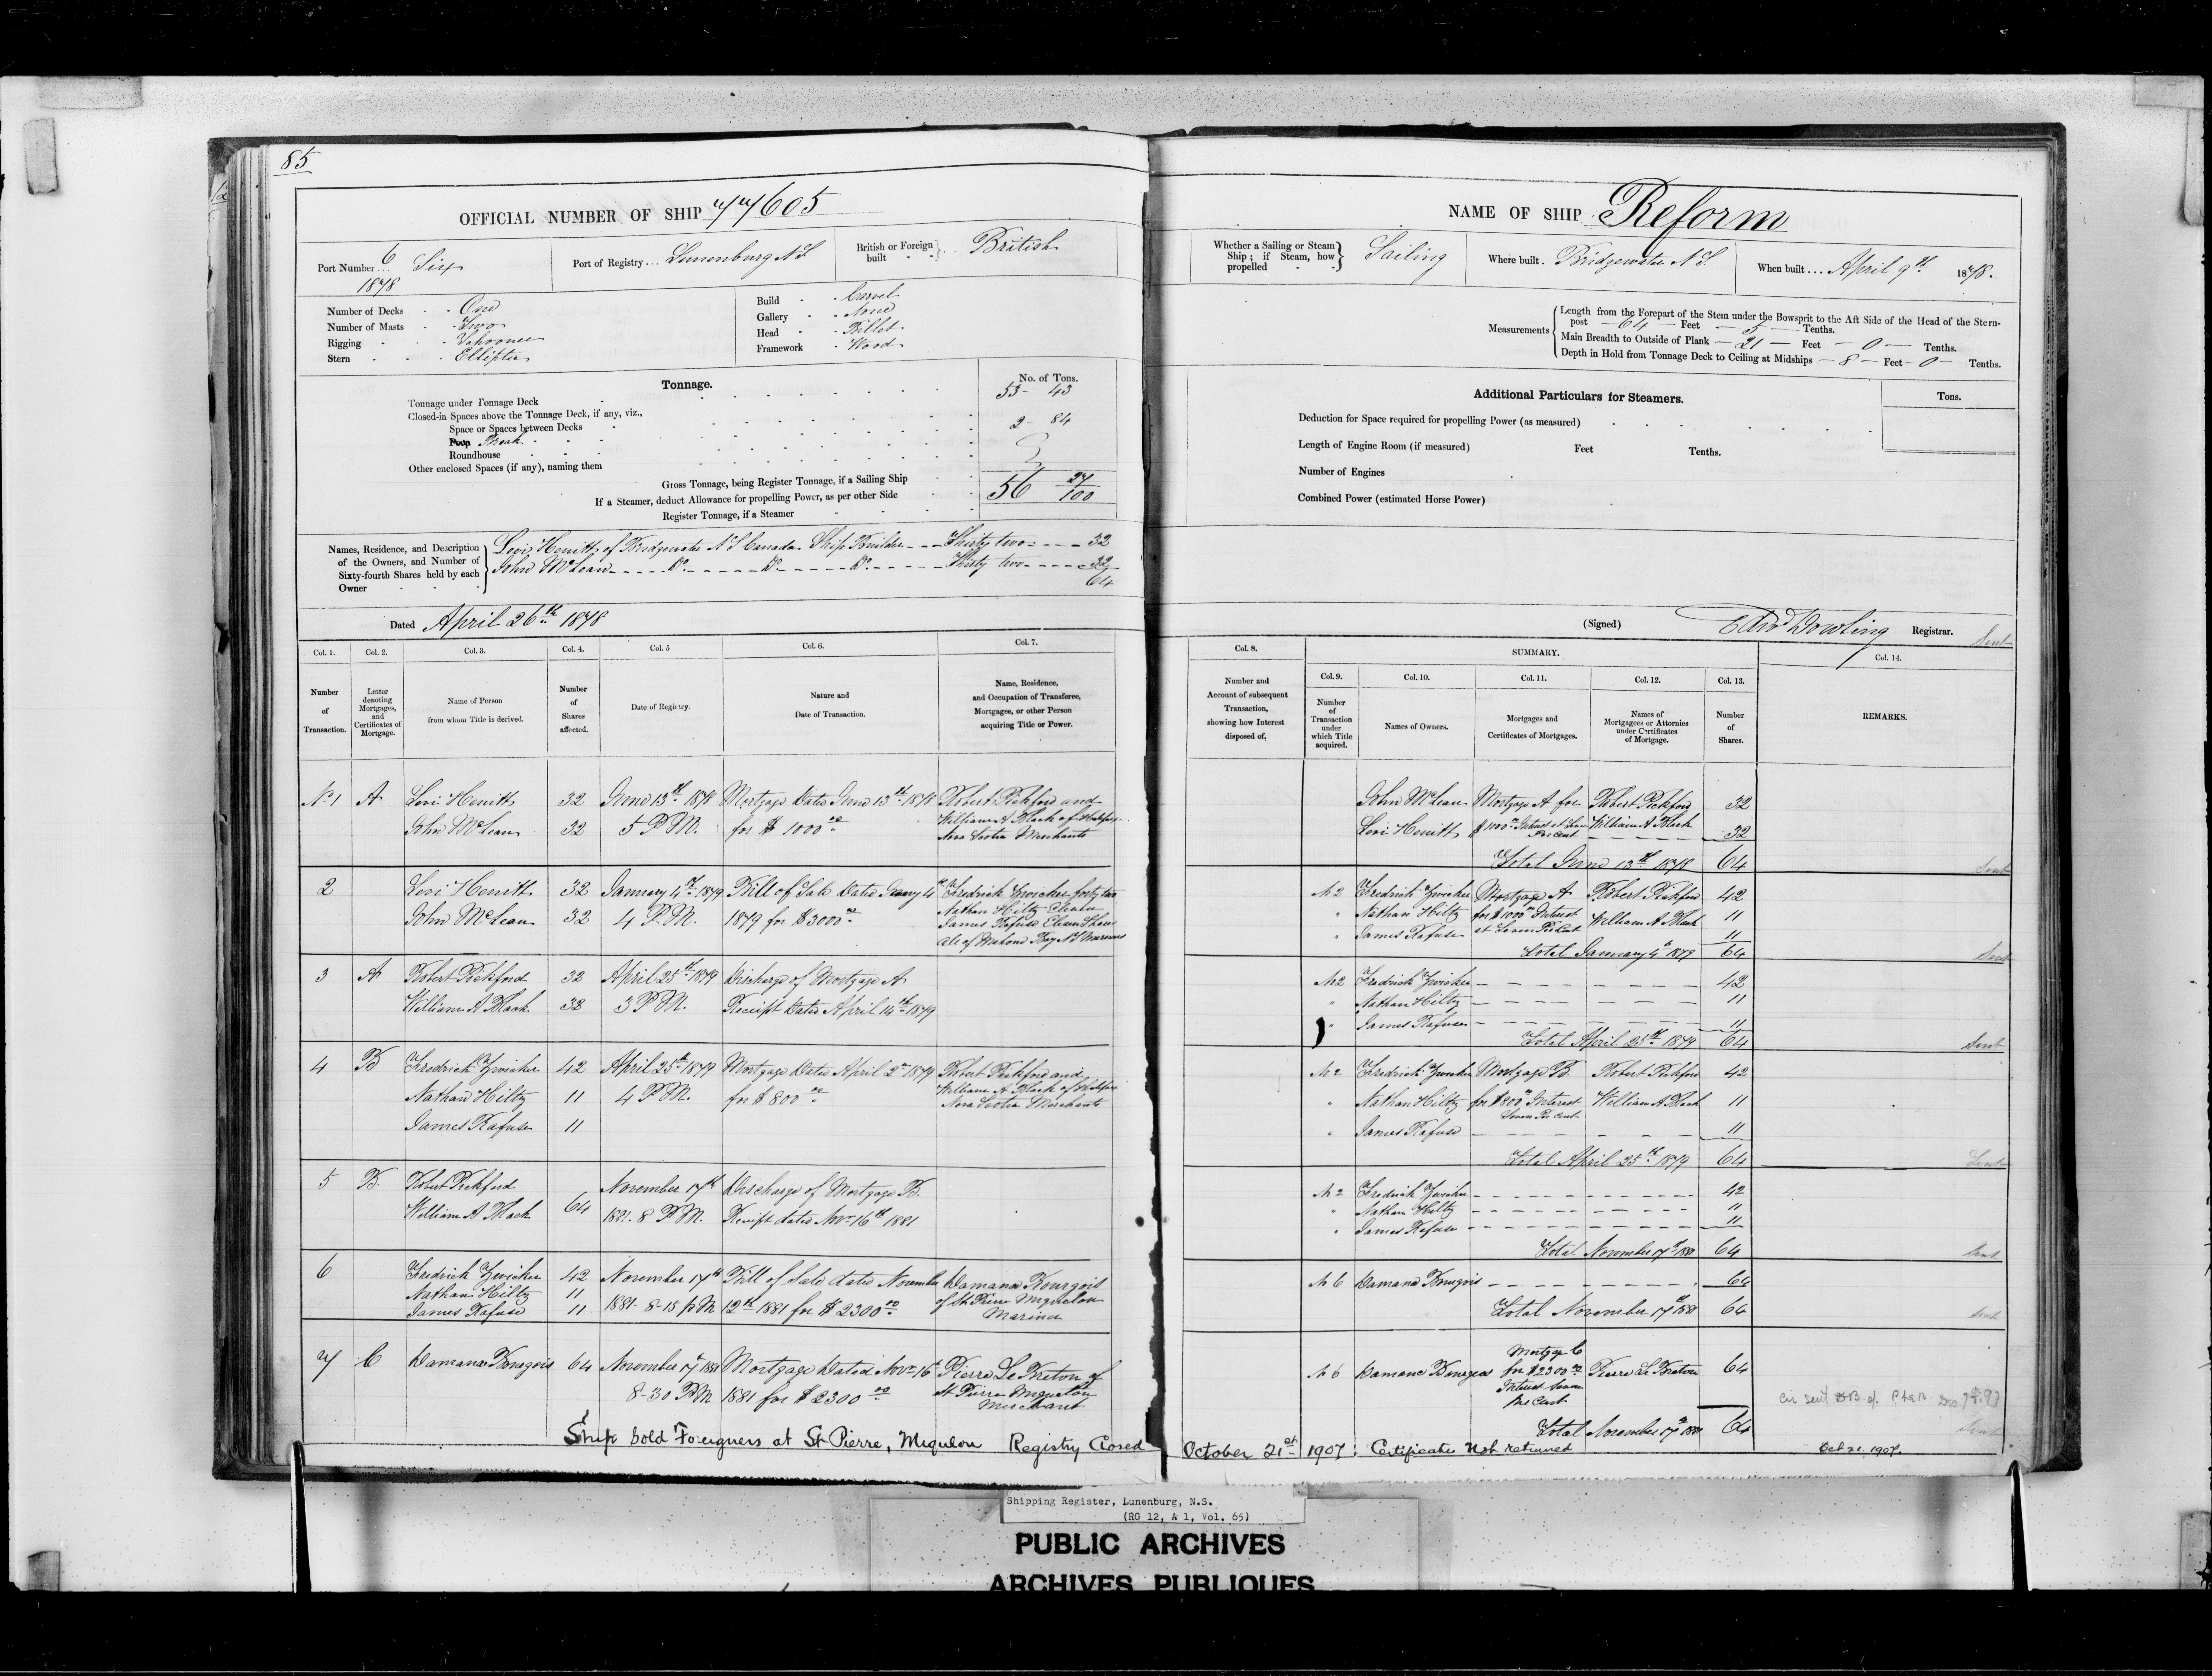 85
OFFICIAL NUMBER OF SHIP 77605
Port Number... 6 Six
1878
Port of Registry... Lunenburg N S
British or Foreign built British
Number of Decks One
Number of Masts Two
Rigging Schooner
Stern Elliptic
Build Carvel
Gallery None
Head Billet
Framework Wood
Tonnage.
No. of Tons.
Tonnage under Tonnage Deck 53 - 43
Closed-in Spaces above the Tonnage Deck, if any, viz.,
Space or Spaces between Decks 2 - 84
Poop Break
Roundhouse
Other enclosed Spaces (if any), naming them
Gross Tonnage, being Register Tonnage, if a Sailing Ship 56 27/100
If a Steamer, deduct Allowance for propelling Power, as per other Side
Register Tonnage, if a Steamer
Names, Residence, and Description of the Owners, and Number of Sixty-fourth Shares held by each Owner
Levi Hewitt of Bridgewater N S Canada Ship Builder Thirty two 32
John McLean Do Do Do Thirty two 32
64
Dated April 26th 1878
NAME OF SHIP Reform
Whether a Sailing or Steam Ship; if Steam, how propelled Sailing
Where built. Bridgewater N S.
When built.... April 9th 1878.
Measurements
Length from the Forepart of the Stem under the Bowsprit to the Aft Side of the Head of the Stern-
post 64 Feet 5 Tenths.
Main Breadth to Outside of Plank 21 Feet 0 Tenths.
Depth in Hold from Tonnage Deck to Ceiling at Midships 8 Feet 0 Tenths.
Additional Particulars for Steamers.
Tons.
Deduction for Space required for propelling Power (as measured)
Length of Engine Room (if measured) Feet Tenths.
Number of Engines
Combined Power (estimated Horse Power)
(Signed) Edwd Dowling Registrar.
Sent
Col. 1. Col. 2. Col. 3. Col. 4. Col. 5 Col. 6. Col. 7.
Number of Transaction.
Letter denoting Mortgages, and Certificates of Mortgage.
Name of Person from whom Title is derived.
Number of Shares affected.
Date of Registry.
Nature and Date of Transaction.
Name, Residence, and Occupation of Transferee, Mortgagee, or other Person acquiring Title or Power.
No 1 A Levi Hewitt 32 June 13th 1878 Mortgage Dated June 13th 1878 Robert Pickford and
John McLean 32 5 P.M. for $ 1000 00 William A Black of Halifax
Nova Scotia Merchants
2 Levi Hewitt 32 January 4th 1879 Bill of Sale Dated Jany 4th Fredrick Zwicker forty two
John McLean 32 4 P.M. 1879 for $3000 00 Nathan Hiltz Eleven
James Rafuse Eleven Shares
All of Mahone Bay N S Mariners
3 A Robert Pickford 32 April 25th 1879 Discharge of Mortgage A
William A Black 32 3 P.M. Receipt Dated April 14th 1879
4 B Fredrick Zwicker 42 April 25th 1879 Mortgage Dated April 2nd 1879 Robert Pickford and
Nathan Hiltz 11 4 P.M. for $ 800 00 William A Black of Halifax
James Rafuse 11 Nova Scotia Merchants
5 B Robert Pickford November 17th Discharge of Mortgage B.
William A Black 64 1881. 8 P.M. Receipt dated Nov 16th 1881
6 Fredrick Zwicker 42 November 17th Bill of Sale dated November Damana Bourgois
Nathan Hiltz 11 1881- 8-15 P.M 12th 1881 for $ 2300 00 of St Pierre Miquelon
James Rafuse 11 Mariner
7 C Damana Bourgois 64 November 17th 1881 Mortgage Dated Nov 16th Pierre Le Breton of
8-30 P.M 1881 for $ 2300 00 St Pierre Miquelon
Merchant
Col. 8. SUMMARY. Col. 14.
Col. 9. Col. 10. Col. 11. Col. 12. Col. 13.
Number and Account of subsequent Transaction, showing how Interest disposed of.
Number of Transaction under which Title acquired.
Names of Owners.
Mortgages and Certificates of Mortgages.
Names of Mortgagees or Attornies under Certificates of Mortgage.
Number of Shares.
REMARKS.
John McLean Mortgage A for Robert Pickford 32
Levi Hewitt $ 1000 00 Interest at Seven Per Cent William A Black 32
Total June 13th 1878 64
Sent
No 2 Fredrick Zwicker Mortgage A Robert Pickford 42
" Nathan Hiltz for $1000 00 Interest William A Black 11
" James Rafuse at Seven Per Cent 11
Total January 4th 1879 64
Sent
No 2 Fredrick Zwicker 42
" Nathan Hiltz 11
" James Rafuse 11
Total April 25th 1879 64
Sent
No 2 Fredrick Zwicker Mortgage B. Robert Pickford 42
" Nathan Hiltz for $800 Interest William A Black 11
Seven Per Cent
" James Rafuse 11
Total April 25th 1879 64
Sent
No 2 Fredrick Zwicker 42
" Nathan Hiltz 11
" James Rafuse 11
Total November 17th 1881 64
Sent
No 6 Damana Bourgois 64
Total November 17th 1881 64
Sent
No 6 Damane Bourgeos Mortgage C for $2300 00 Interest Seven Per Cent Pierre Le Breton 64
Total November 17th 1881 64
Sent
Ship sold Foreigners at St Pierre, Miqulon Registry Closed October 21st 1907. Certificate Not returned
Oct 21, 1907.
Shipping Register, Lunenburg, N.S.
(RG 12, A 1, Vol. 65)
PUBLIC ARCHIVES
ARCHIVES PUBLIQUES